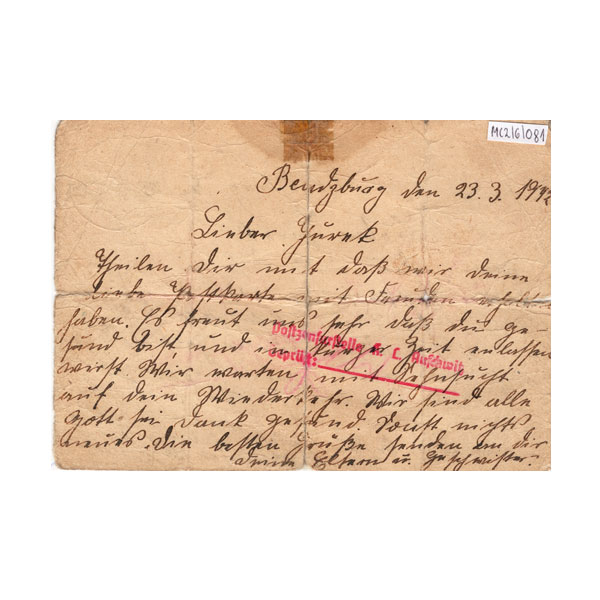 MC2/6/081
Bendzburg den 23.3.1942
Lieber Jurek
Theilen Dir mit daß wir deine
liebe Postkarte mit Freuden erhalten
haben. Es freut uns sehr daß du ge-
sund bist und in kurze Zeit enlassen
Postzensurstelle K. L. Auschwitz
Geprüft:
wirst Wir warten mit Sehnsucht
auf dein Wiederkehr. Wir sind alle
Gott sei Dank gesund. Sonst nichts
neues. Die besten Grüße senden an dir
Deine Eltern u. Geschwister.